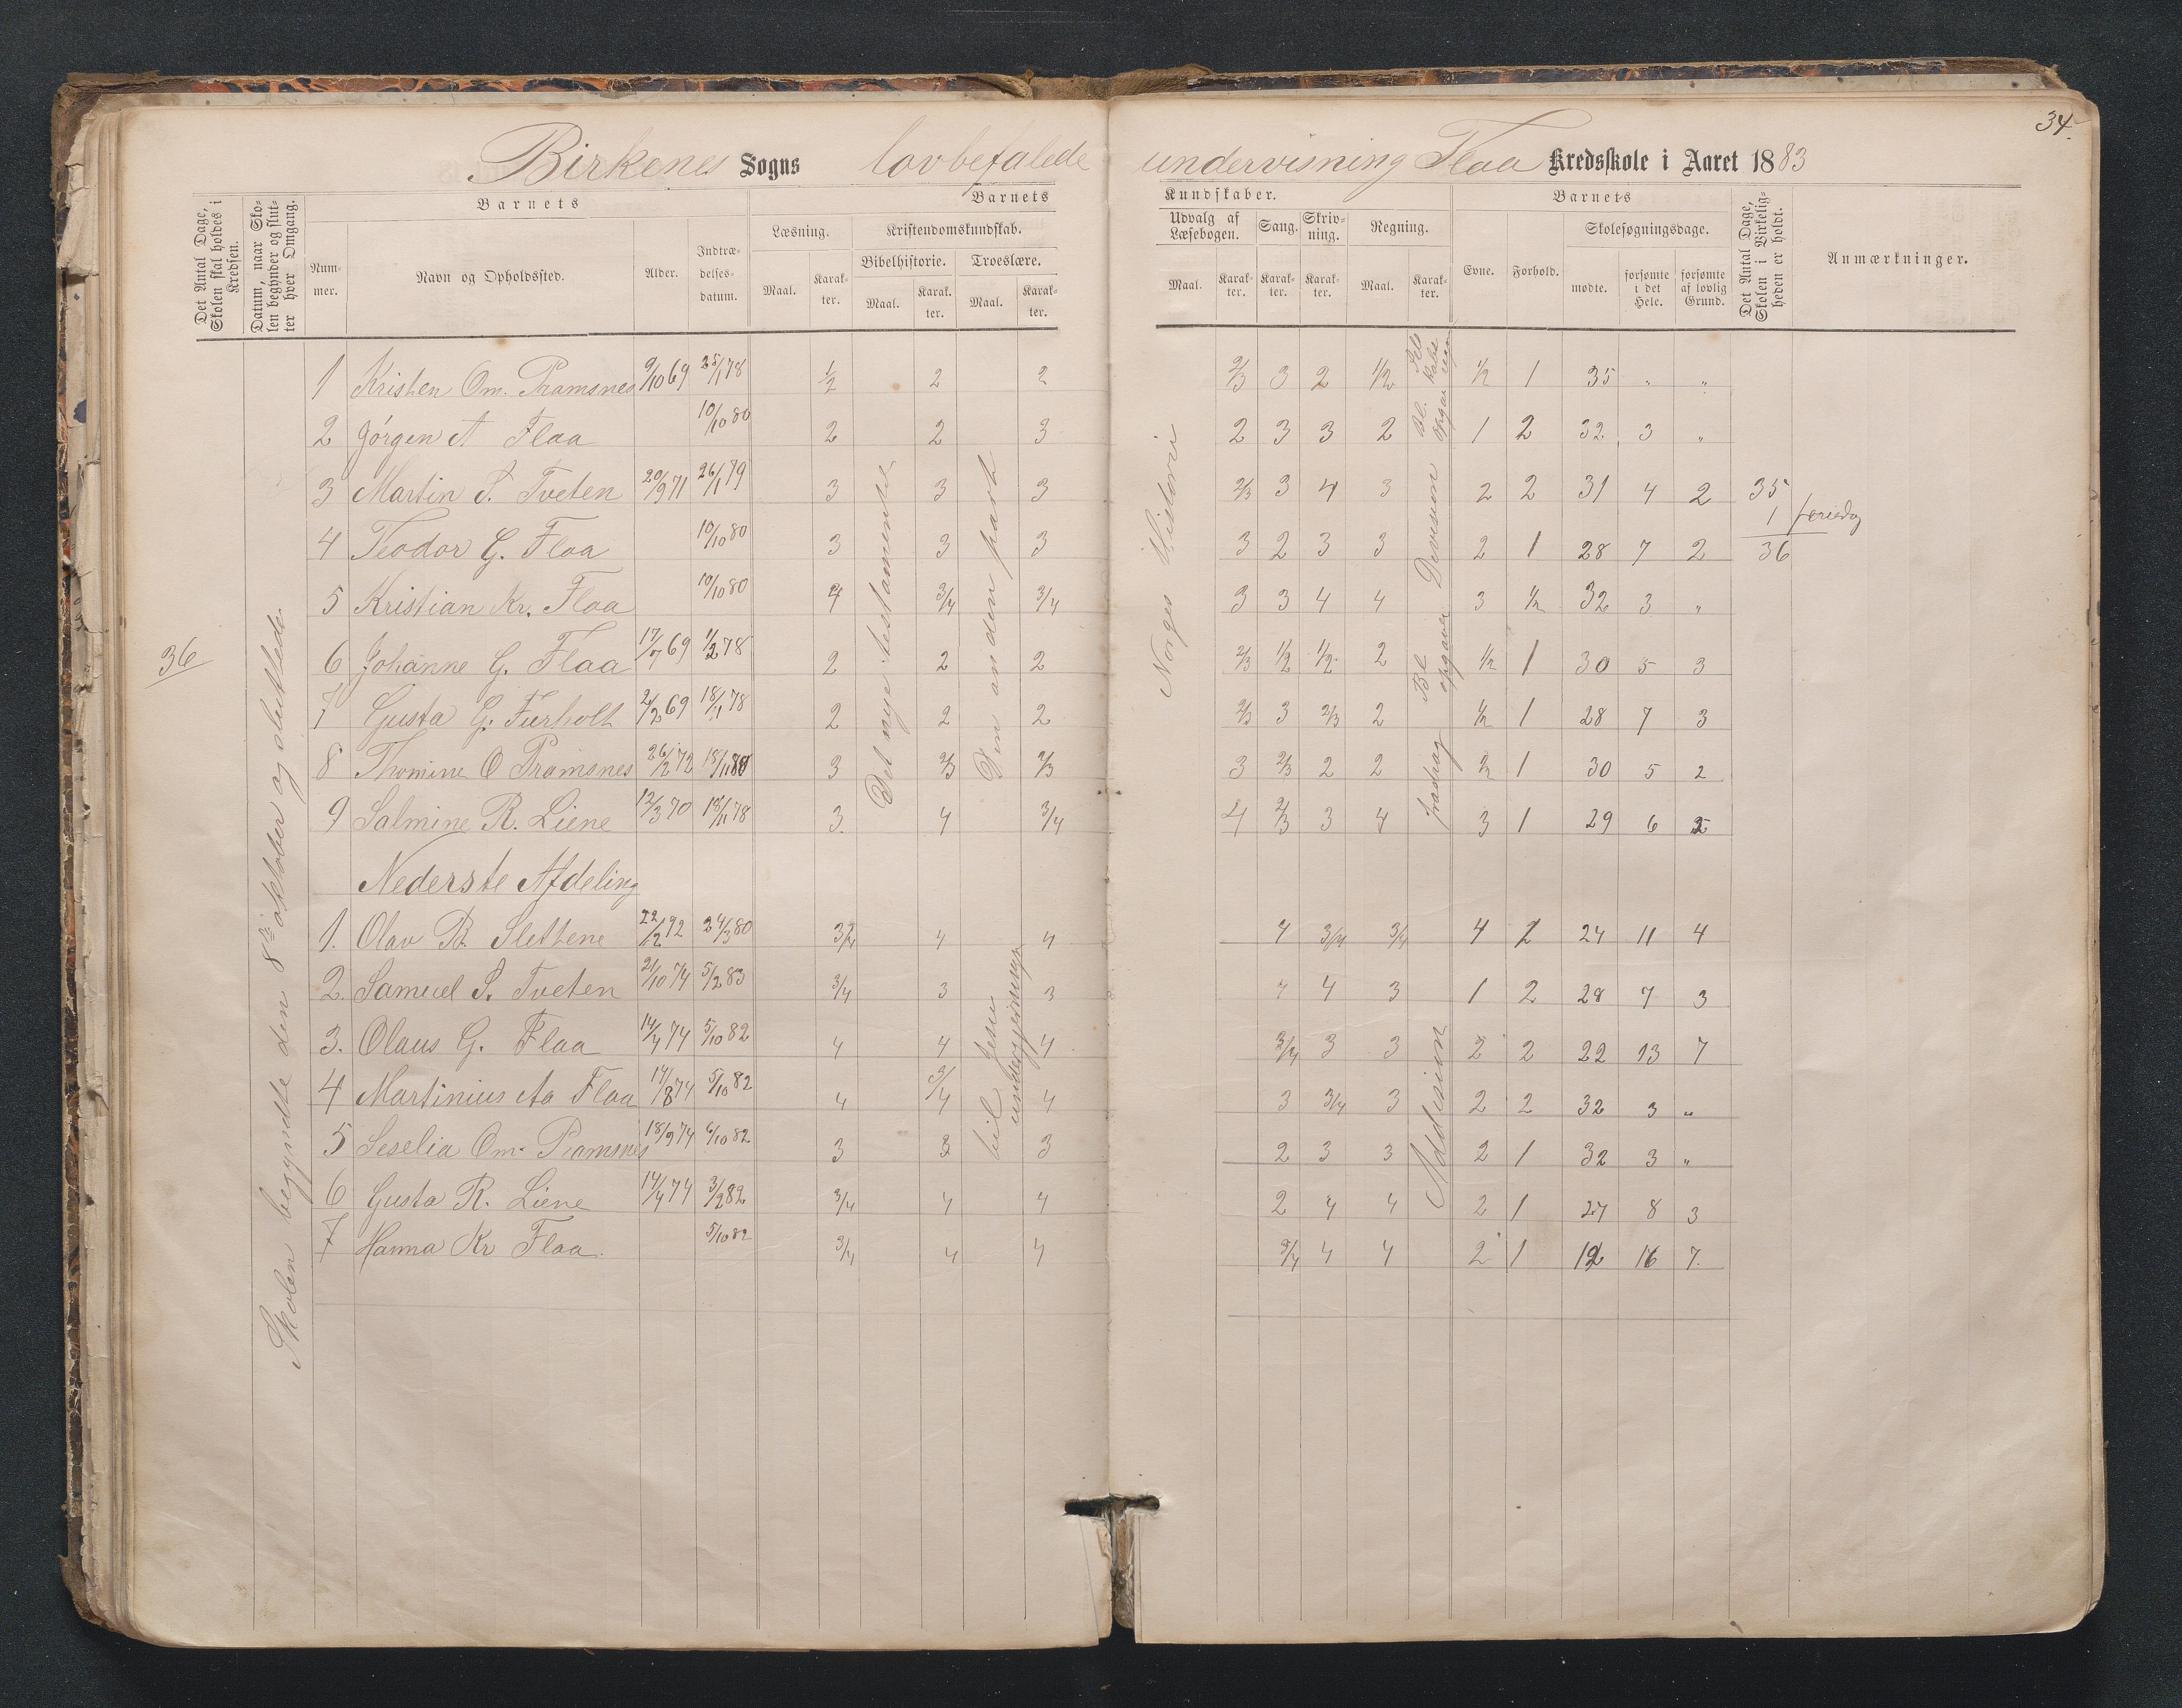 34.
Birkenes Sogns lovbefalede undervisning Flaa Kredsskole i Aaret 1883
Det Antal Dage, Skolen skal holdes i Kredsen.
Datum, naar Skolen begynder og slutter hver Omgang.
Barnets
Nummer.
Navn og Opholdssted.
Alder.
Indtrædelsesdatum.
Barnets Kundskaber.
Læsning.
Maal. Karakter.
Kristendomskundskab.
Bibelhistorie. Troeslære.
Maal. Karakter. Maal. Karakter.
Udvalg af Læsebogen.
Maal. Karakter.
Sang. Karakter.
Skrivning. Karakter.
Regning.
Maal. Karakter.
Barnets
Evne. Forhold.
Skolesøgningsdage.
mødte. forsømte i det Hele. forsømte af lovlig Grund.
Det Antal Dage, Skolen i Virkeligheden er holdt.
Anmærkninger.
36
Skolen begyndte den 8de oktober og sluttede
Det nye testamente
Den anden part
Norges Historie
1 Kristen Om. Pramsnes 9/10 69 25/1 78 1/2 2 2 2/3 3 2 1/2 1/2 1 35 " "
2 Jørgen A Flaa 10/10 80 2 2 3 2 3 3 2 1 2 32 3 "
3 Martin S. Tveten 20/9 71 26/1 79 3 3 3 2/3 3 4 3 2 2 31 4 2 35
1 feriedag
4 Teodor G. Flaa 10/10 80 3 3 3 3 2 3 3 2 1 28 7 2 36
5 Kristian Kr. Flaa 10/10 80 4 3/4 3/4 3 3 4 4 3 1/2 32 3 "
6 Johanne G. Flaa 17/7 69 1/2 78 2 2 2 2/3 1/2 1/2 2 1/2 1 30 5 3
7 Gusta G. Furholt 2/2 69 18/11 78 2 2 2 2/3 3 2/3 2 1/2 1 28 7 3
8 Thomine O Pramsnes 26/2 72 18/11 80 3 2/3 2/3 3 2/3 2 2 2/2 1 30 5 2
9 Salmine R. Liene 12/3 70 18/11 78 3. 4 3/4 4 2/3 3 4 3 1 29 6 2
Nederste Afdeling
til Jesu
Addision
1. Olav B. Slettene 22/2 72 24/3 80 3/4 4 4 4 3/4 3/4 4 2 24 11 4
2. Samuel S. Tveten 21/10 74 5/2 83 3/4 3 3 4 4 3 1 2 28 7 3
3. Olaus G. Flaa 14/4 74 5/10 82 4 4 4 3/4 3 3 2 2 22 13 7
4 Martinius Aa Flaa 14/8 74 5/10 82 4 3/4 4 3 3/4 3 2 2 32 3 "
5 Seselia Om. Pramsnes 18/9 74 6/10 82 3 3 3 2 3 3 2 1 32 3 "
6 Gusta R. Liene 14/4 74 3/2 82 3/4 4 4 2 4 4 2 1 27 8 3
7 Hanna Kr Flaa. 5/10 82 3/4 4 4 3/4 4 4 2 1 12 16 7.